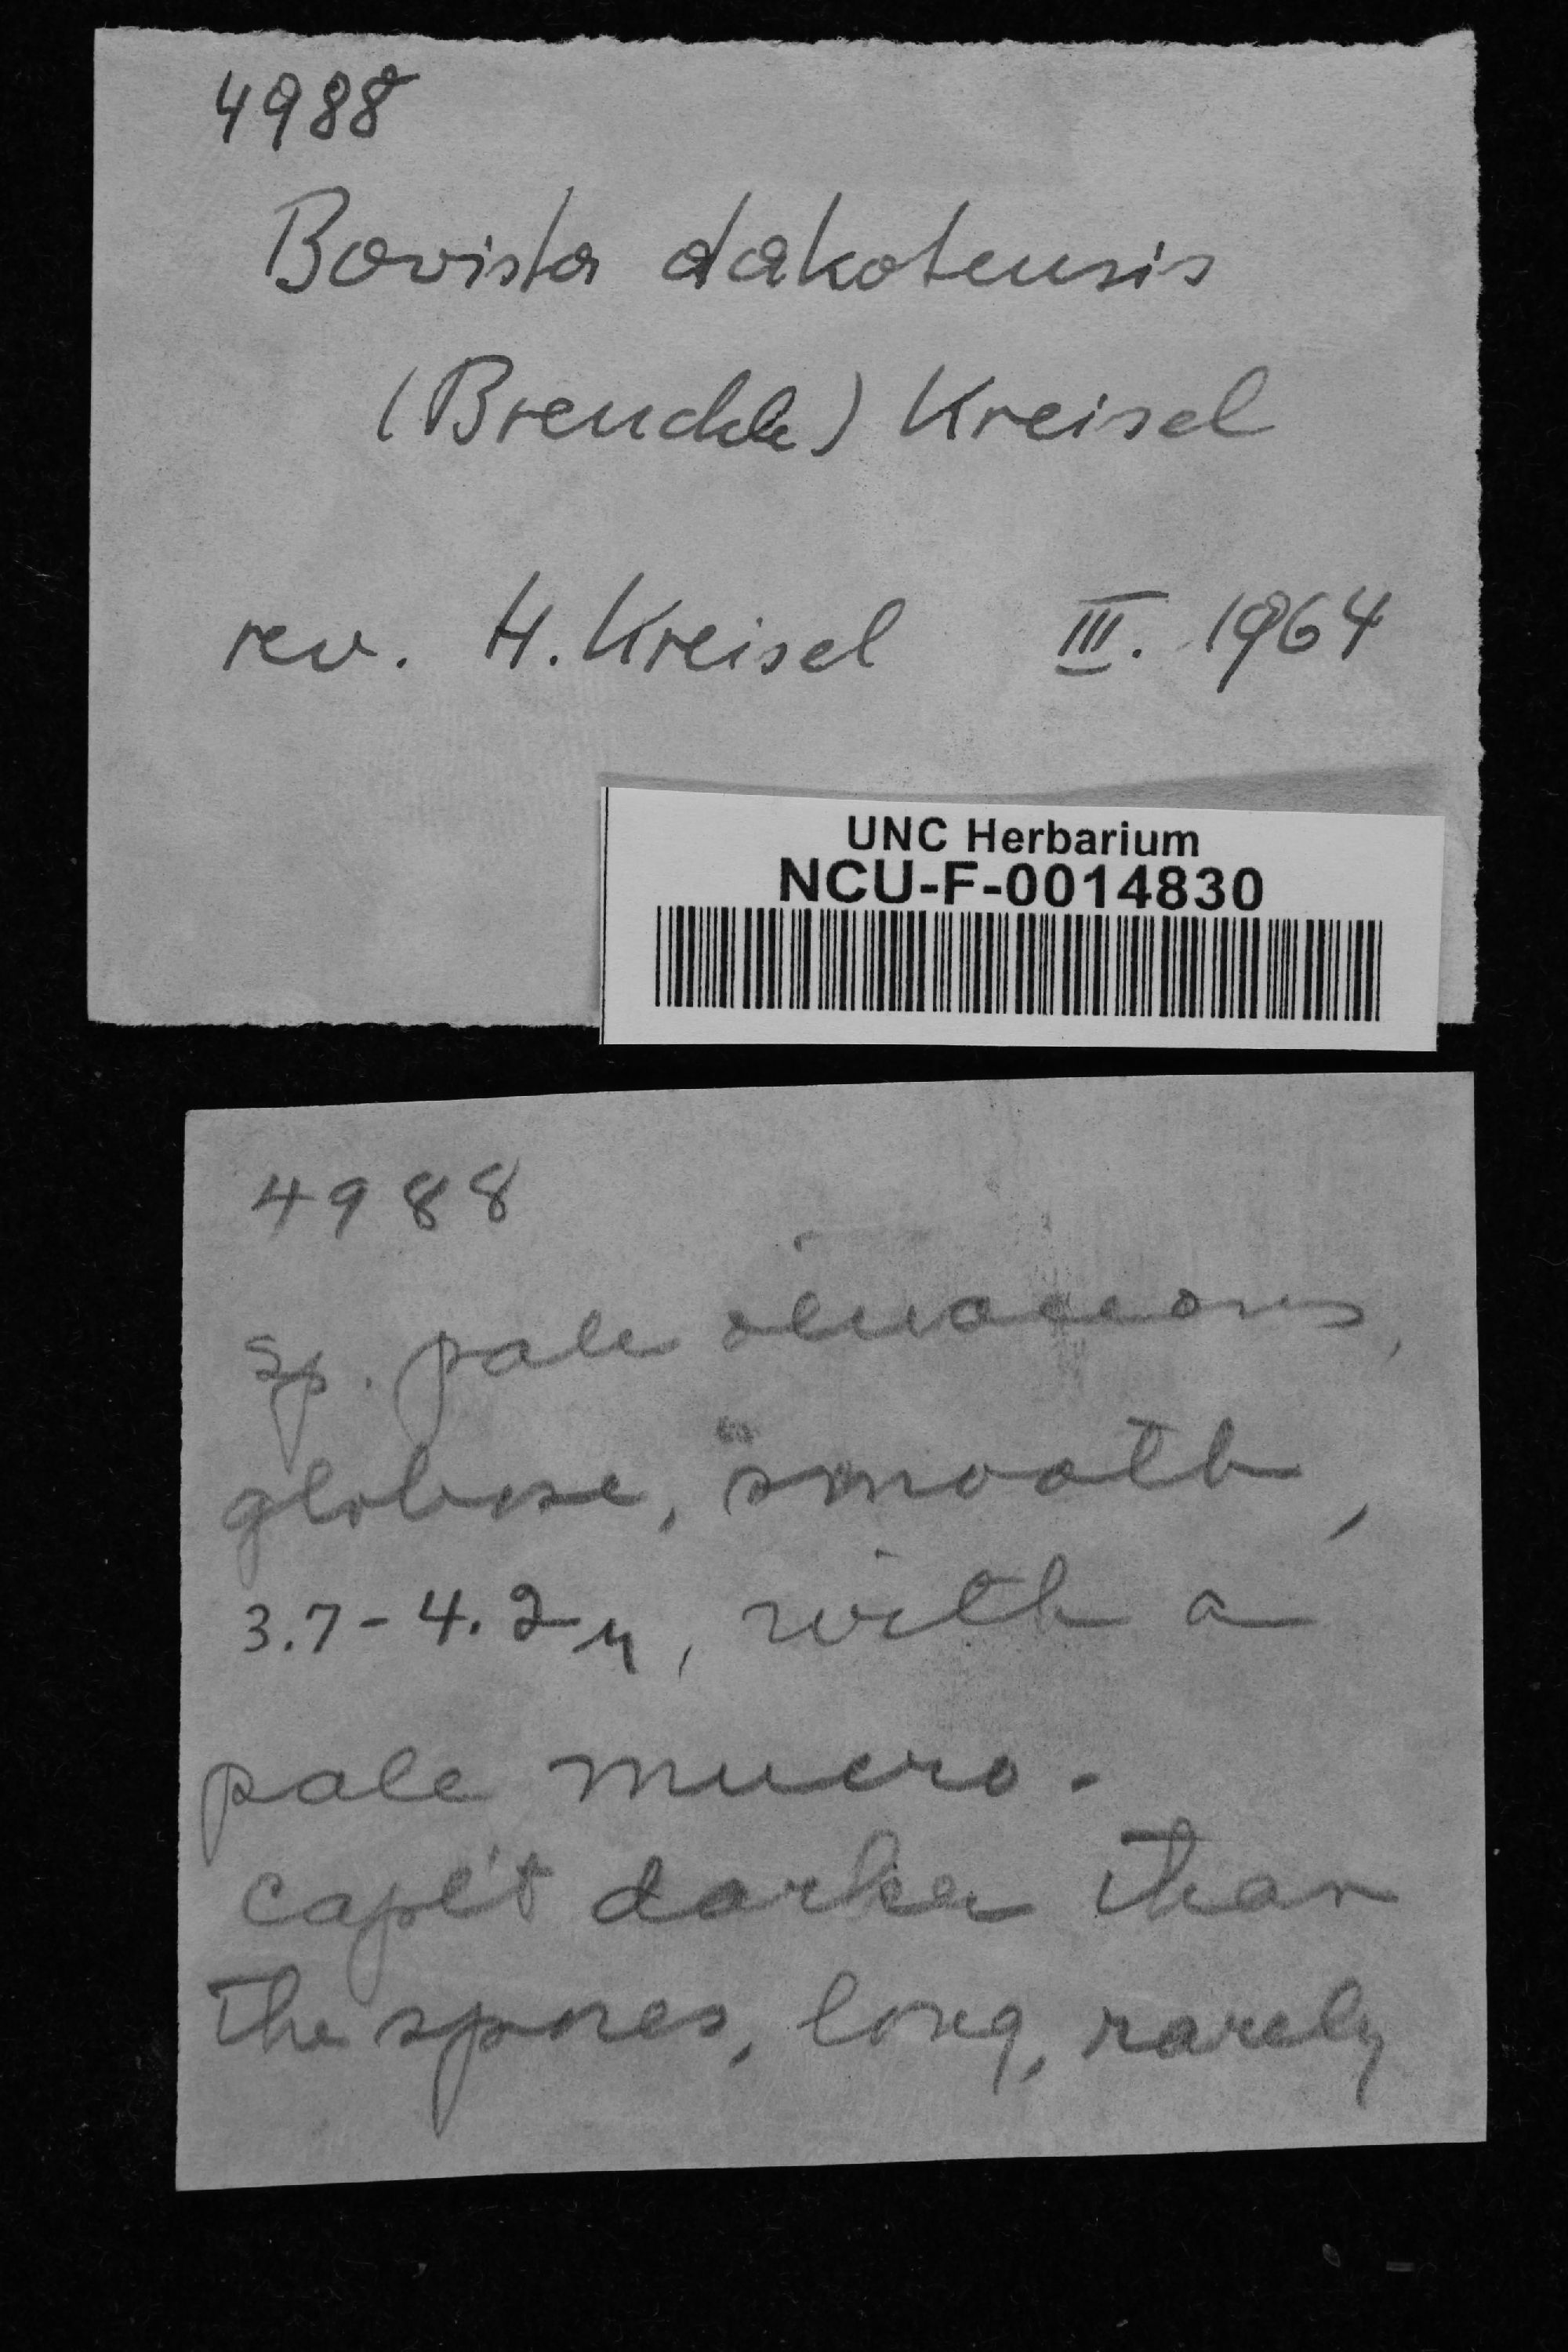 4988
Bovista dakotensis
(Brenckle) Kreisel
rev. H. Kreisel III. 1964
UNC Herbarium
NCU-F-0014830
4988
sp. pale olivaceous,
globose, "smooth,
3.7-4.2 μ, with a
pale mucro.
capil't darker than
the spores, long, rarely